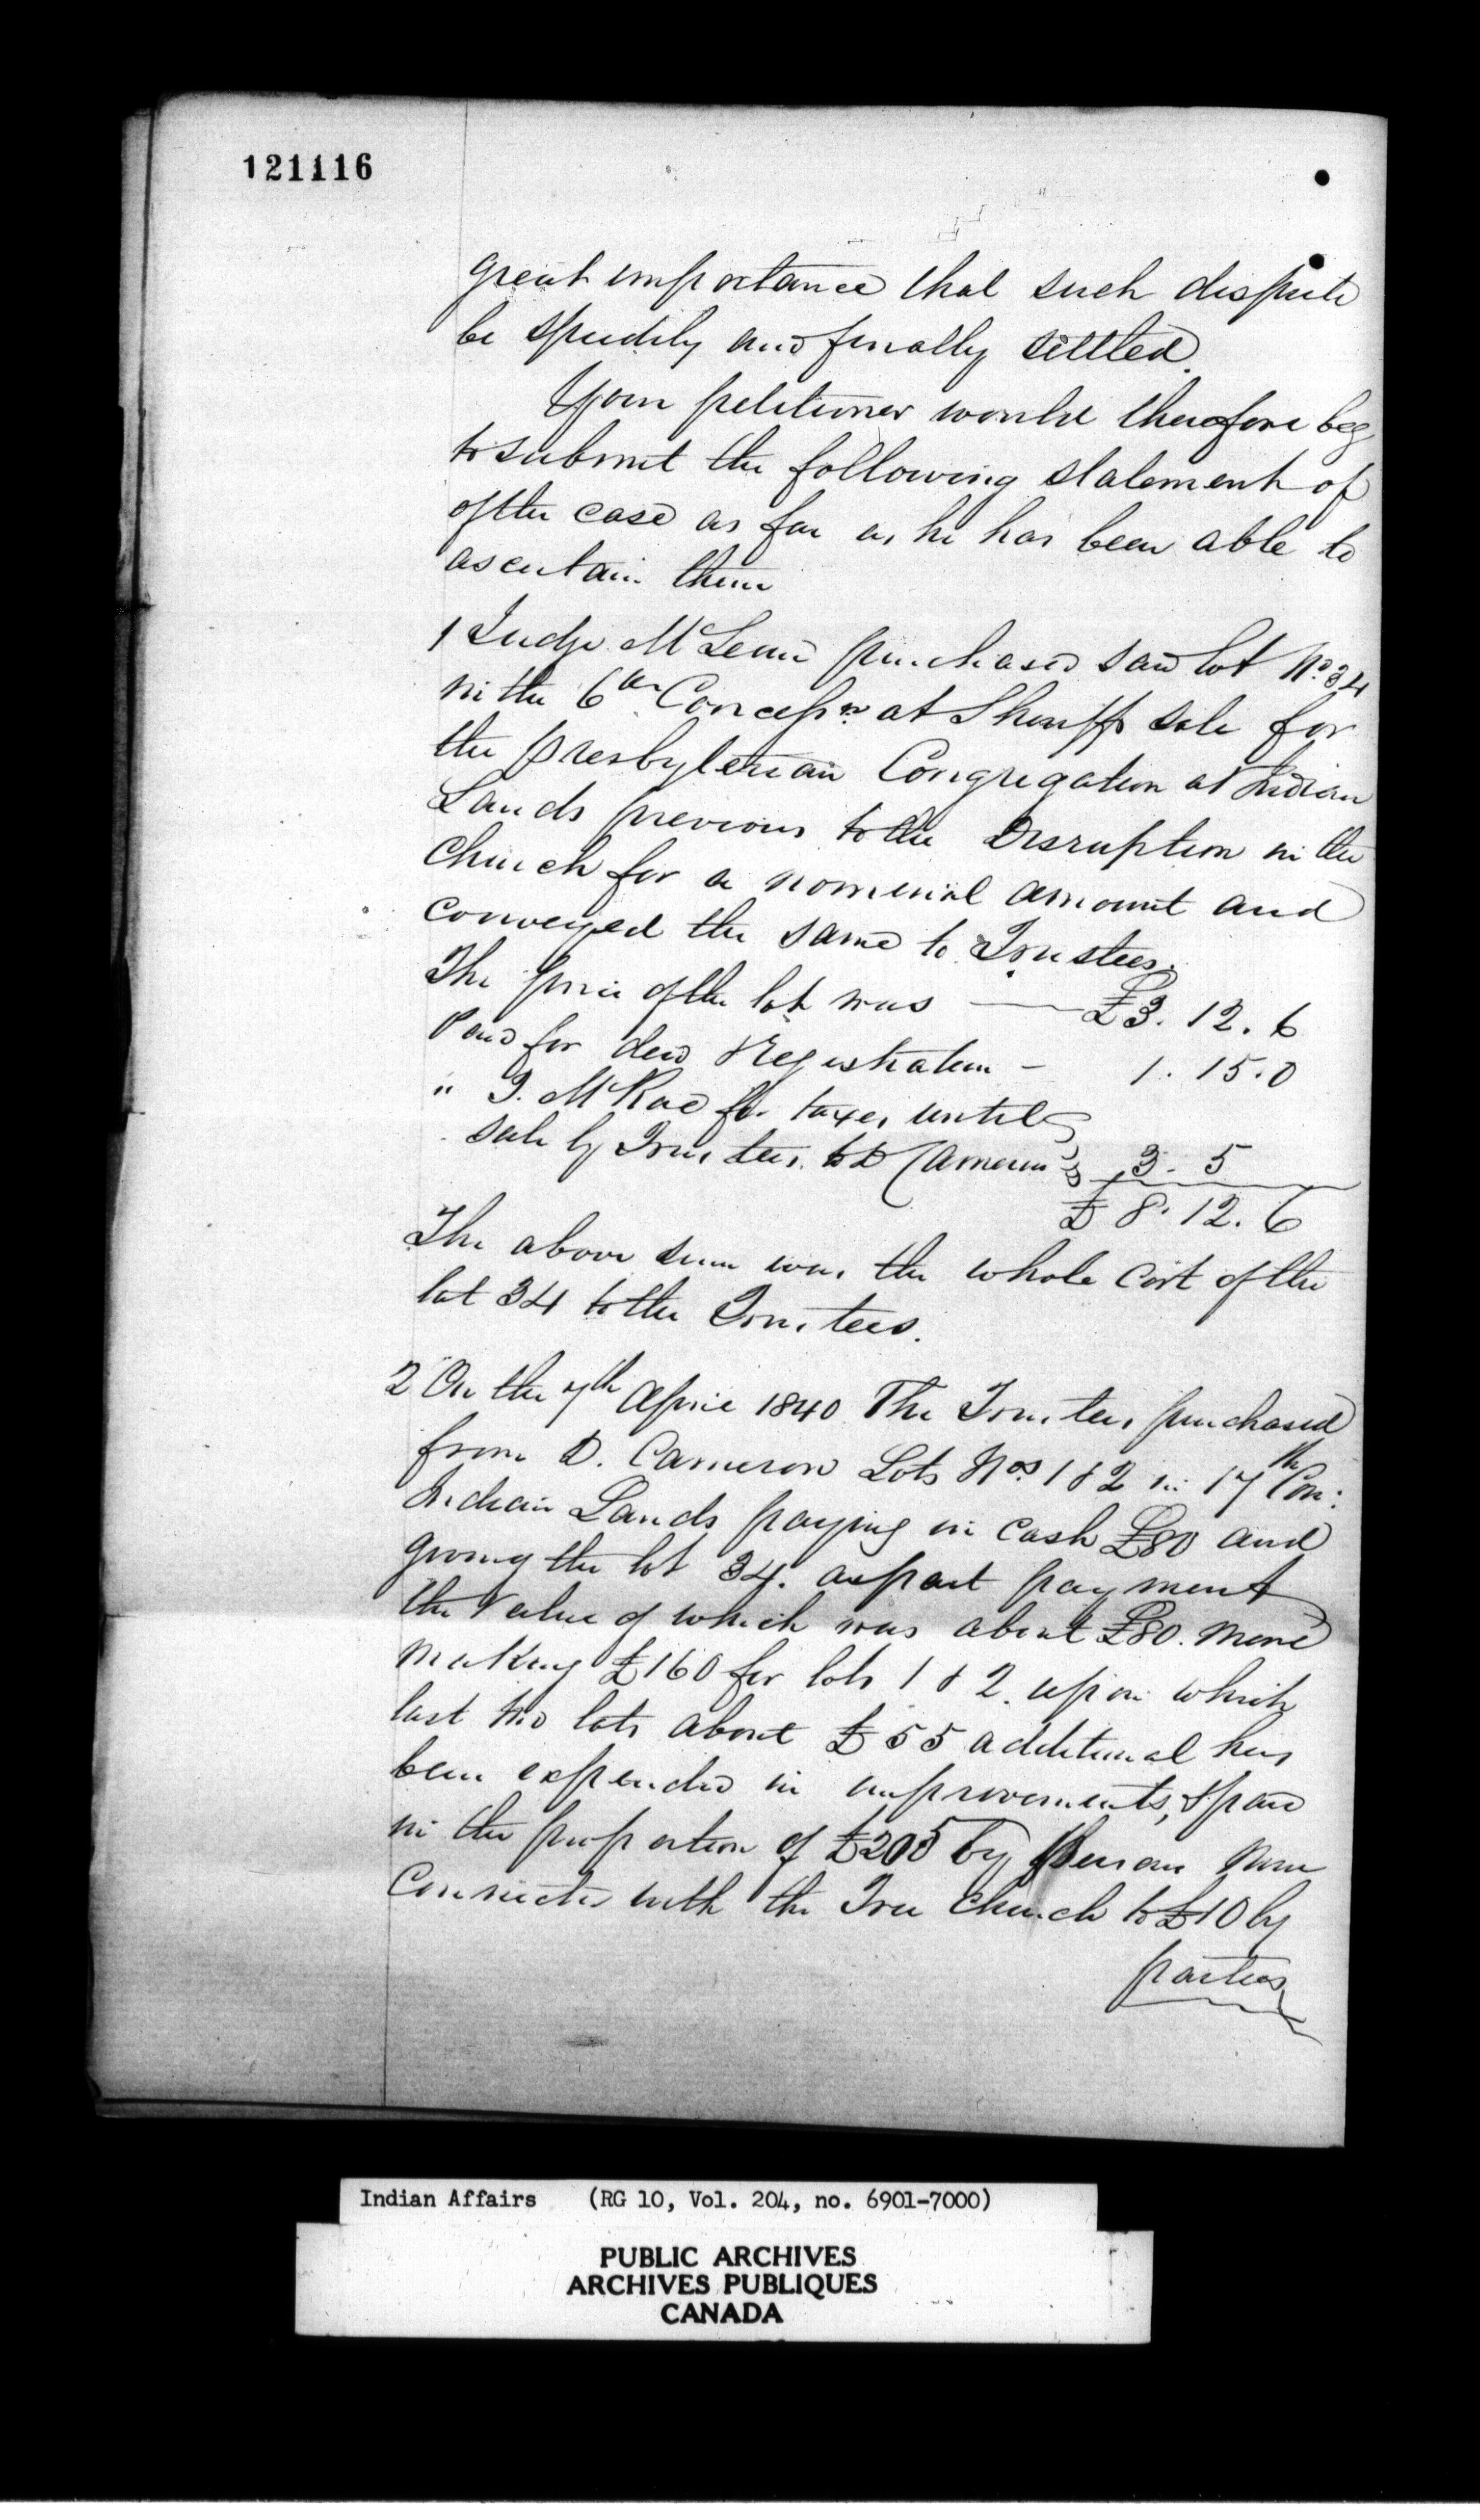 121116
great importance that such dispute
be speedily and finally settled.
Your petitioner would therefore beg
to submit the following statement of
of the case as far as he has been able to
ascertain them
1 Judge McLean purchased said lot No. 34
in the 6th Concessn at Sheriffs sale for
the Presbyterian Congregation at Indian
Lands previous to the Disruption in the
Church for a nominal amount and
conveyed the same to Trustees.
The price of the lot was — £3. 12. 6
Paid for deed & Registration - 1. 15. 0
" McRae for taxes until
sale by Trustees to D Cameron 3. 5
£ 8. 12. 6
The above sum was the whole cost of the
lot 34 to the Trustees.
2 On the 7th April 1840 The Trustees purchased
from D. Cameron Lots Nos. 1 & 2 in 17th Con:
Indian Lands paying in cash £80 and
giving the lot 34. as part payment
the value of which was about £80. more
making £160 for lots 1 & 2. upon which
last two lots about £55 additional has
been expended in improvements, & paid
in the proportion of £205 by Persons now
Connected with the Free Church to £10 by
parties
Indian Affairs (RG 10, Vol. 204, no. 6901-7000)
PUBLIC ARCHIVES
ARCHIVES PUBLIQUES
CANADA